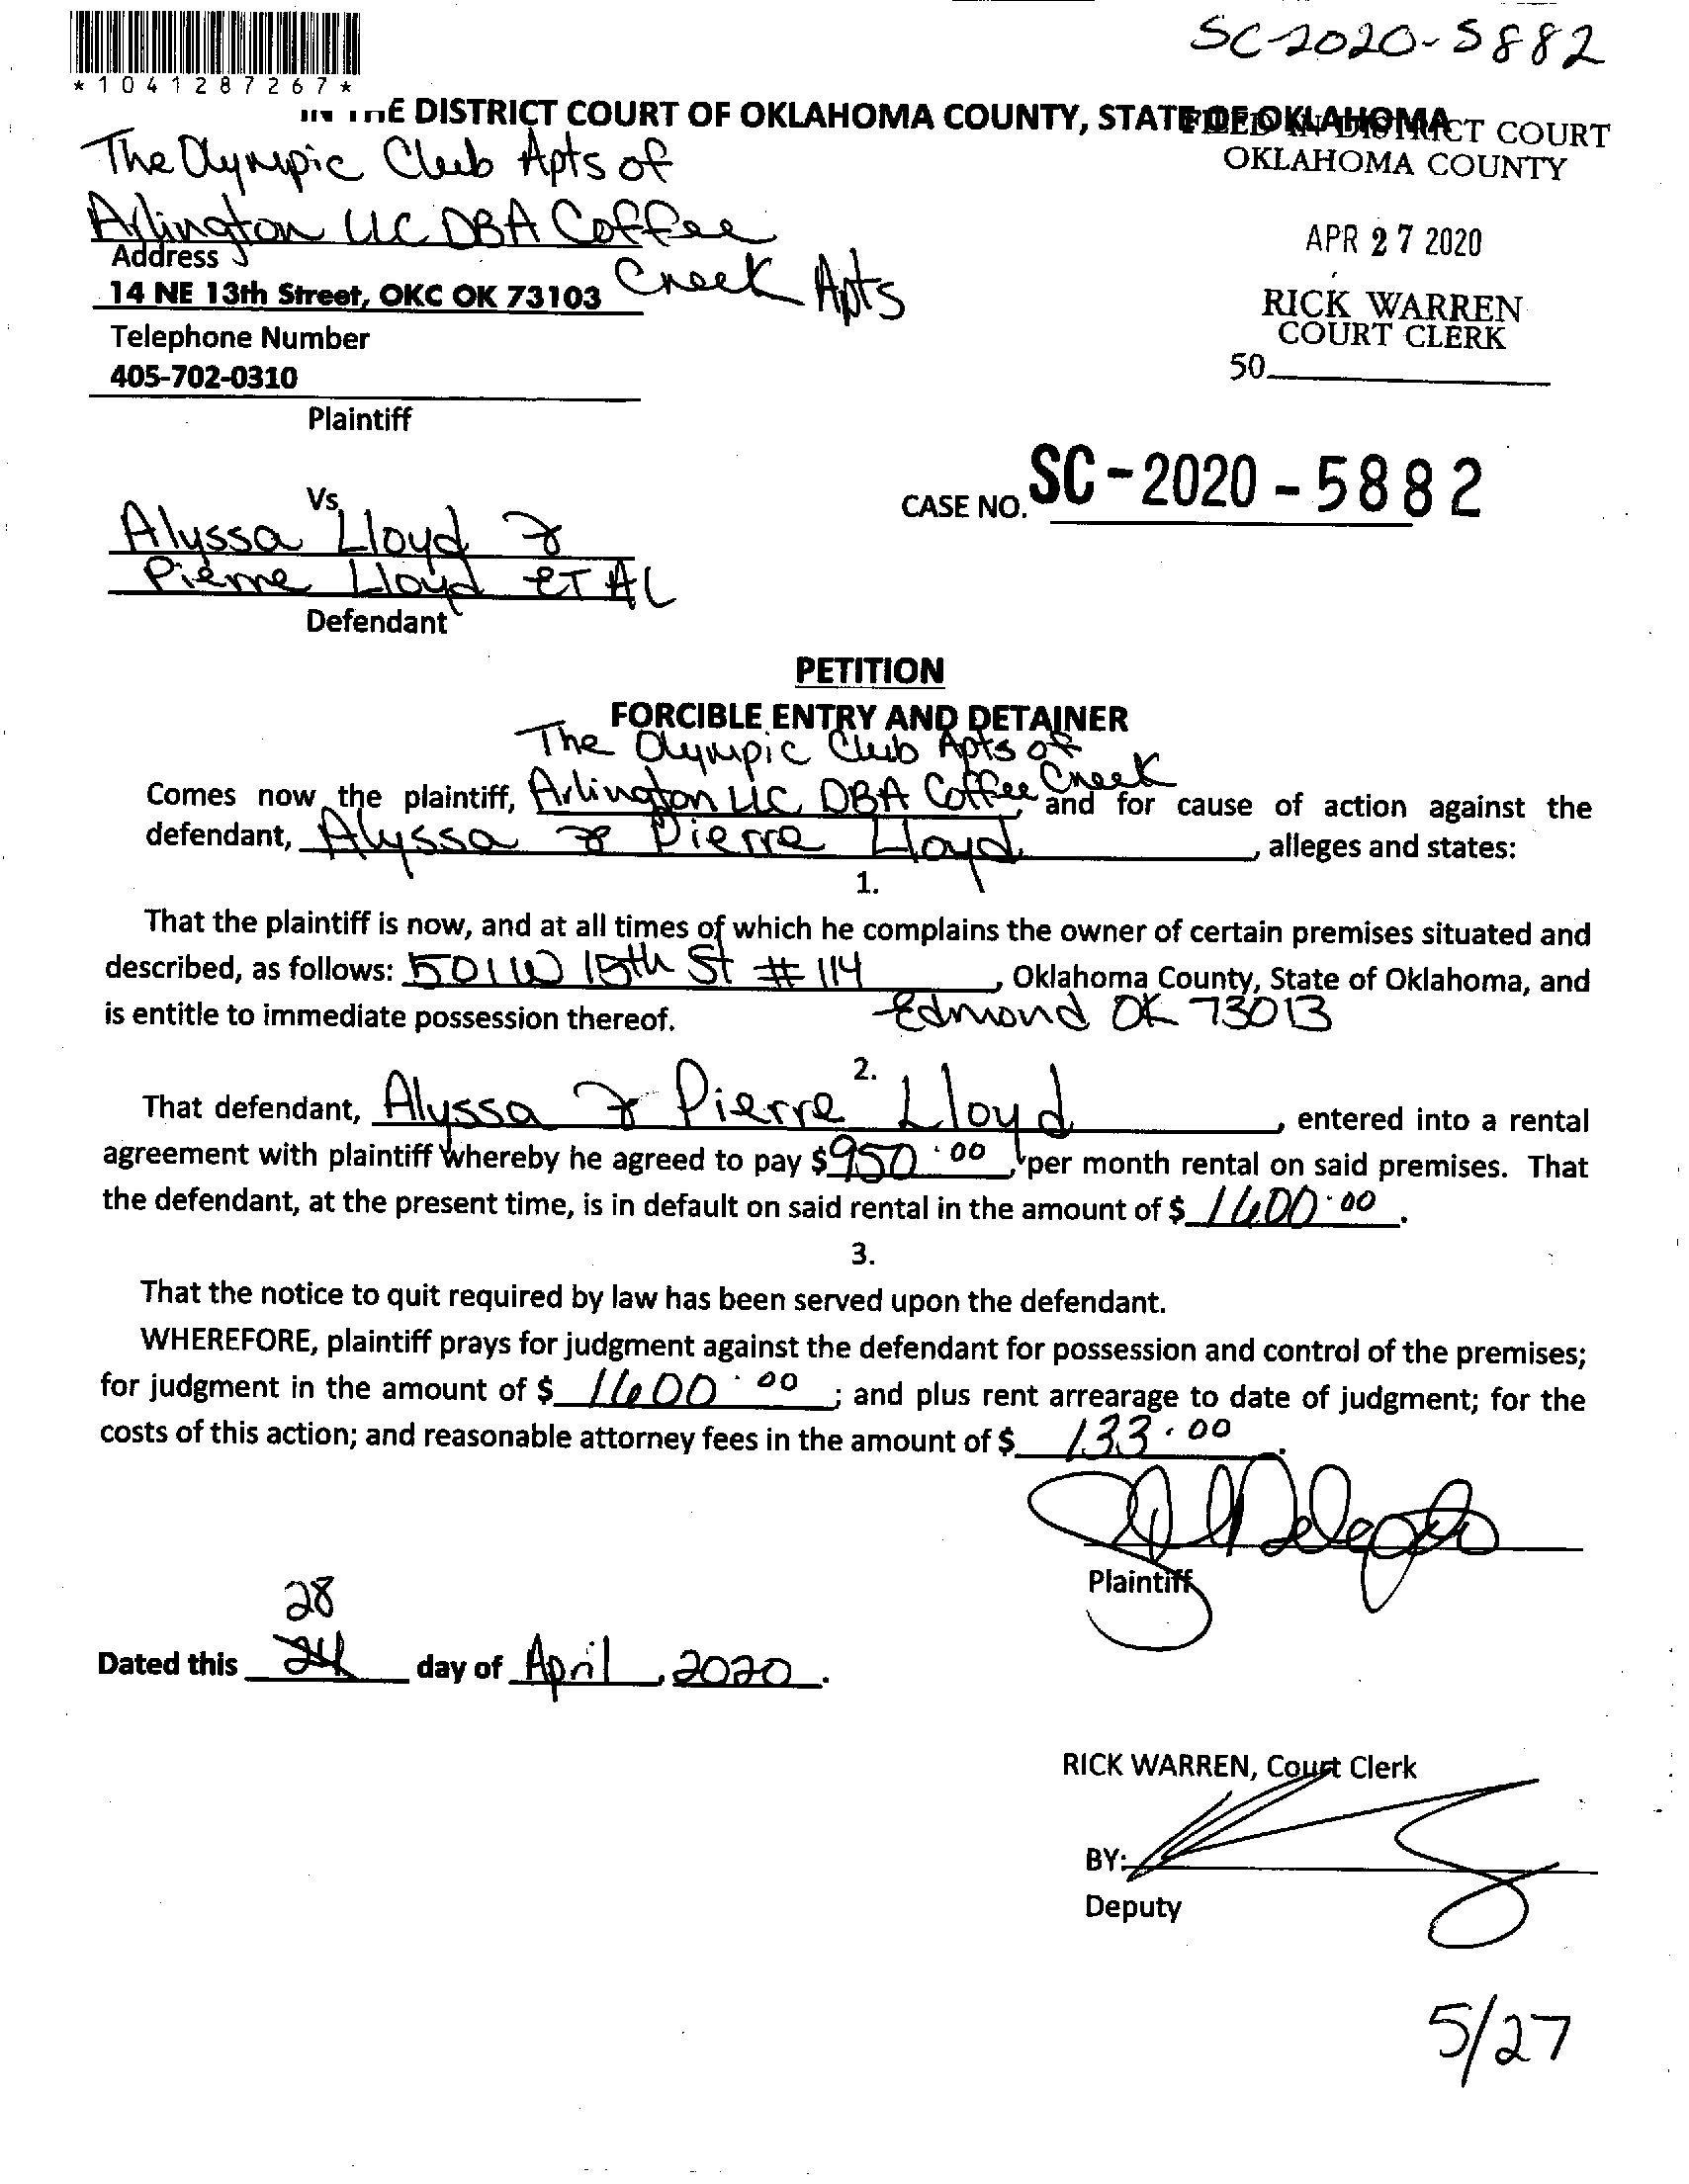 SC-2020-5882
*1041287267*
IN THE DISTRICT COURT OF OKLAHOMA COUNTY, STATE OF OKLAHOMA
FILED IN DISTRICT COURT
OKLAHOMA COUNTY
The Olympic Club Apts of
Arlington LLC DBA Coffee
Creek Apts
APR 27 2020
Address
14 NE 13th Street, OKC OK 73103
RICK WARREN
COURT CLERK
Telephone Number
50
405-702-0310
Plaintiff
Vs.
CASE NO. SC-2020-5882
Alyssa Lloyd &
Pierre Lloyd ET AL
Defendant
PETITION
FORCIBLE ENTRY AND DETAINER
The Olympic Club Apts of
Comes now the plaintiff, Arlington LLC DBA Coffee Creek, and for cause of action against the
defendant, Alyssa & Pierre Lloyd, alleges and states:
1.
That the plaintiff is now, and at all times of which he complains the owner of certain premises situated and
described, as follows: 501 W 15th St #114, Oklahoma County, State of Oklahoma, and
is entitle to immediate possession thereof. Edmond OK 73013
2.
That defendant, Alyssa & Pierre Lloyd, entered into a rental
agreement with plaintiff whereby he agreed to pay $950.00, per month rental on said premises. That
the defendant, at the present time, is in default on said rental in the amount of $1600.00.
3.
That the notice to quit required by law has been served upon the defendant.
WHEREFORE, plaintiff prays for judgment against the defendant for possession and control of the premises;
for judgment in the amount of $1600.00; and plus rent arrearage to date of judgment; for the
costs of this action; and reasonable attorney fees in the amount of $133.00.
Plaintiff
28
Dated this 24 day of April, 2020.
RICK WARREN, Court Clerk
BY:
Deputy
5/27